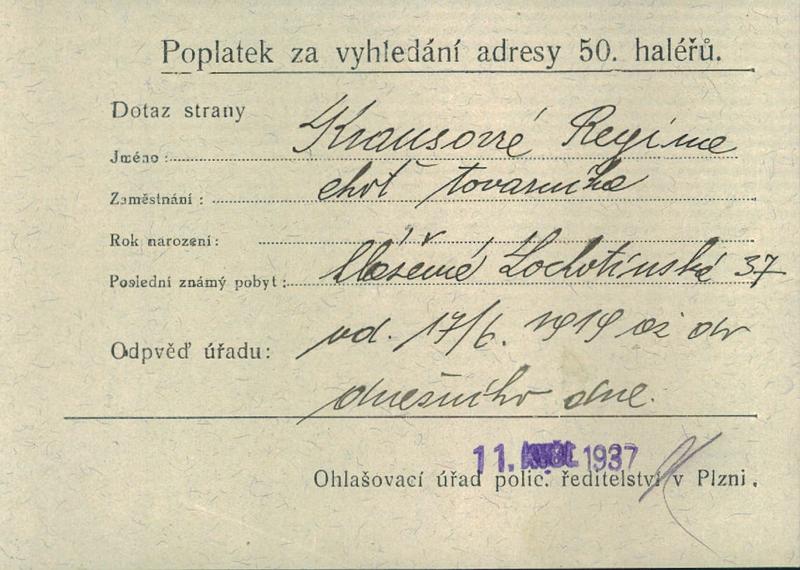 Poplatek za vyhledání adresy 50. haléřů.
Dotaz strany
Jméno: Krausové Regine
Zaměstnání: choť továrníka
Rok narození:
Poslední známý pobyt: Lochotínská 37
Odpvěď úřadu: od. 17/6. 1919 až do
dnešního dne.
11. 1937
Ohlašovací úřad polic. ředitelství v Plzni.